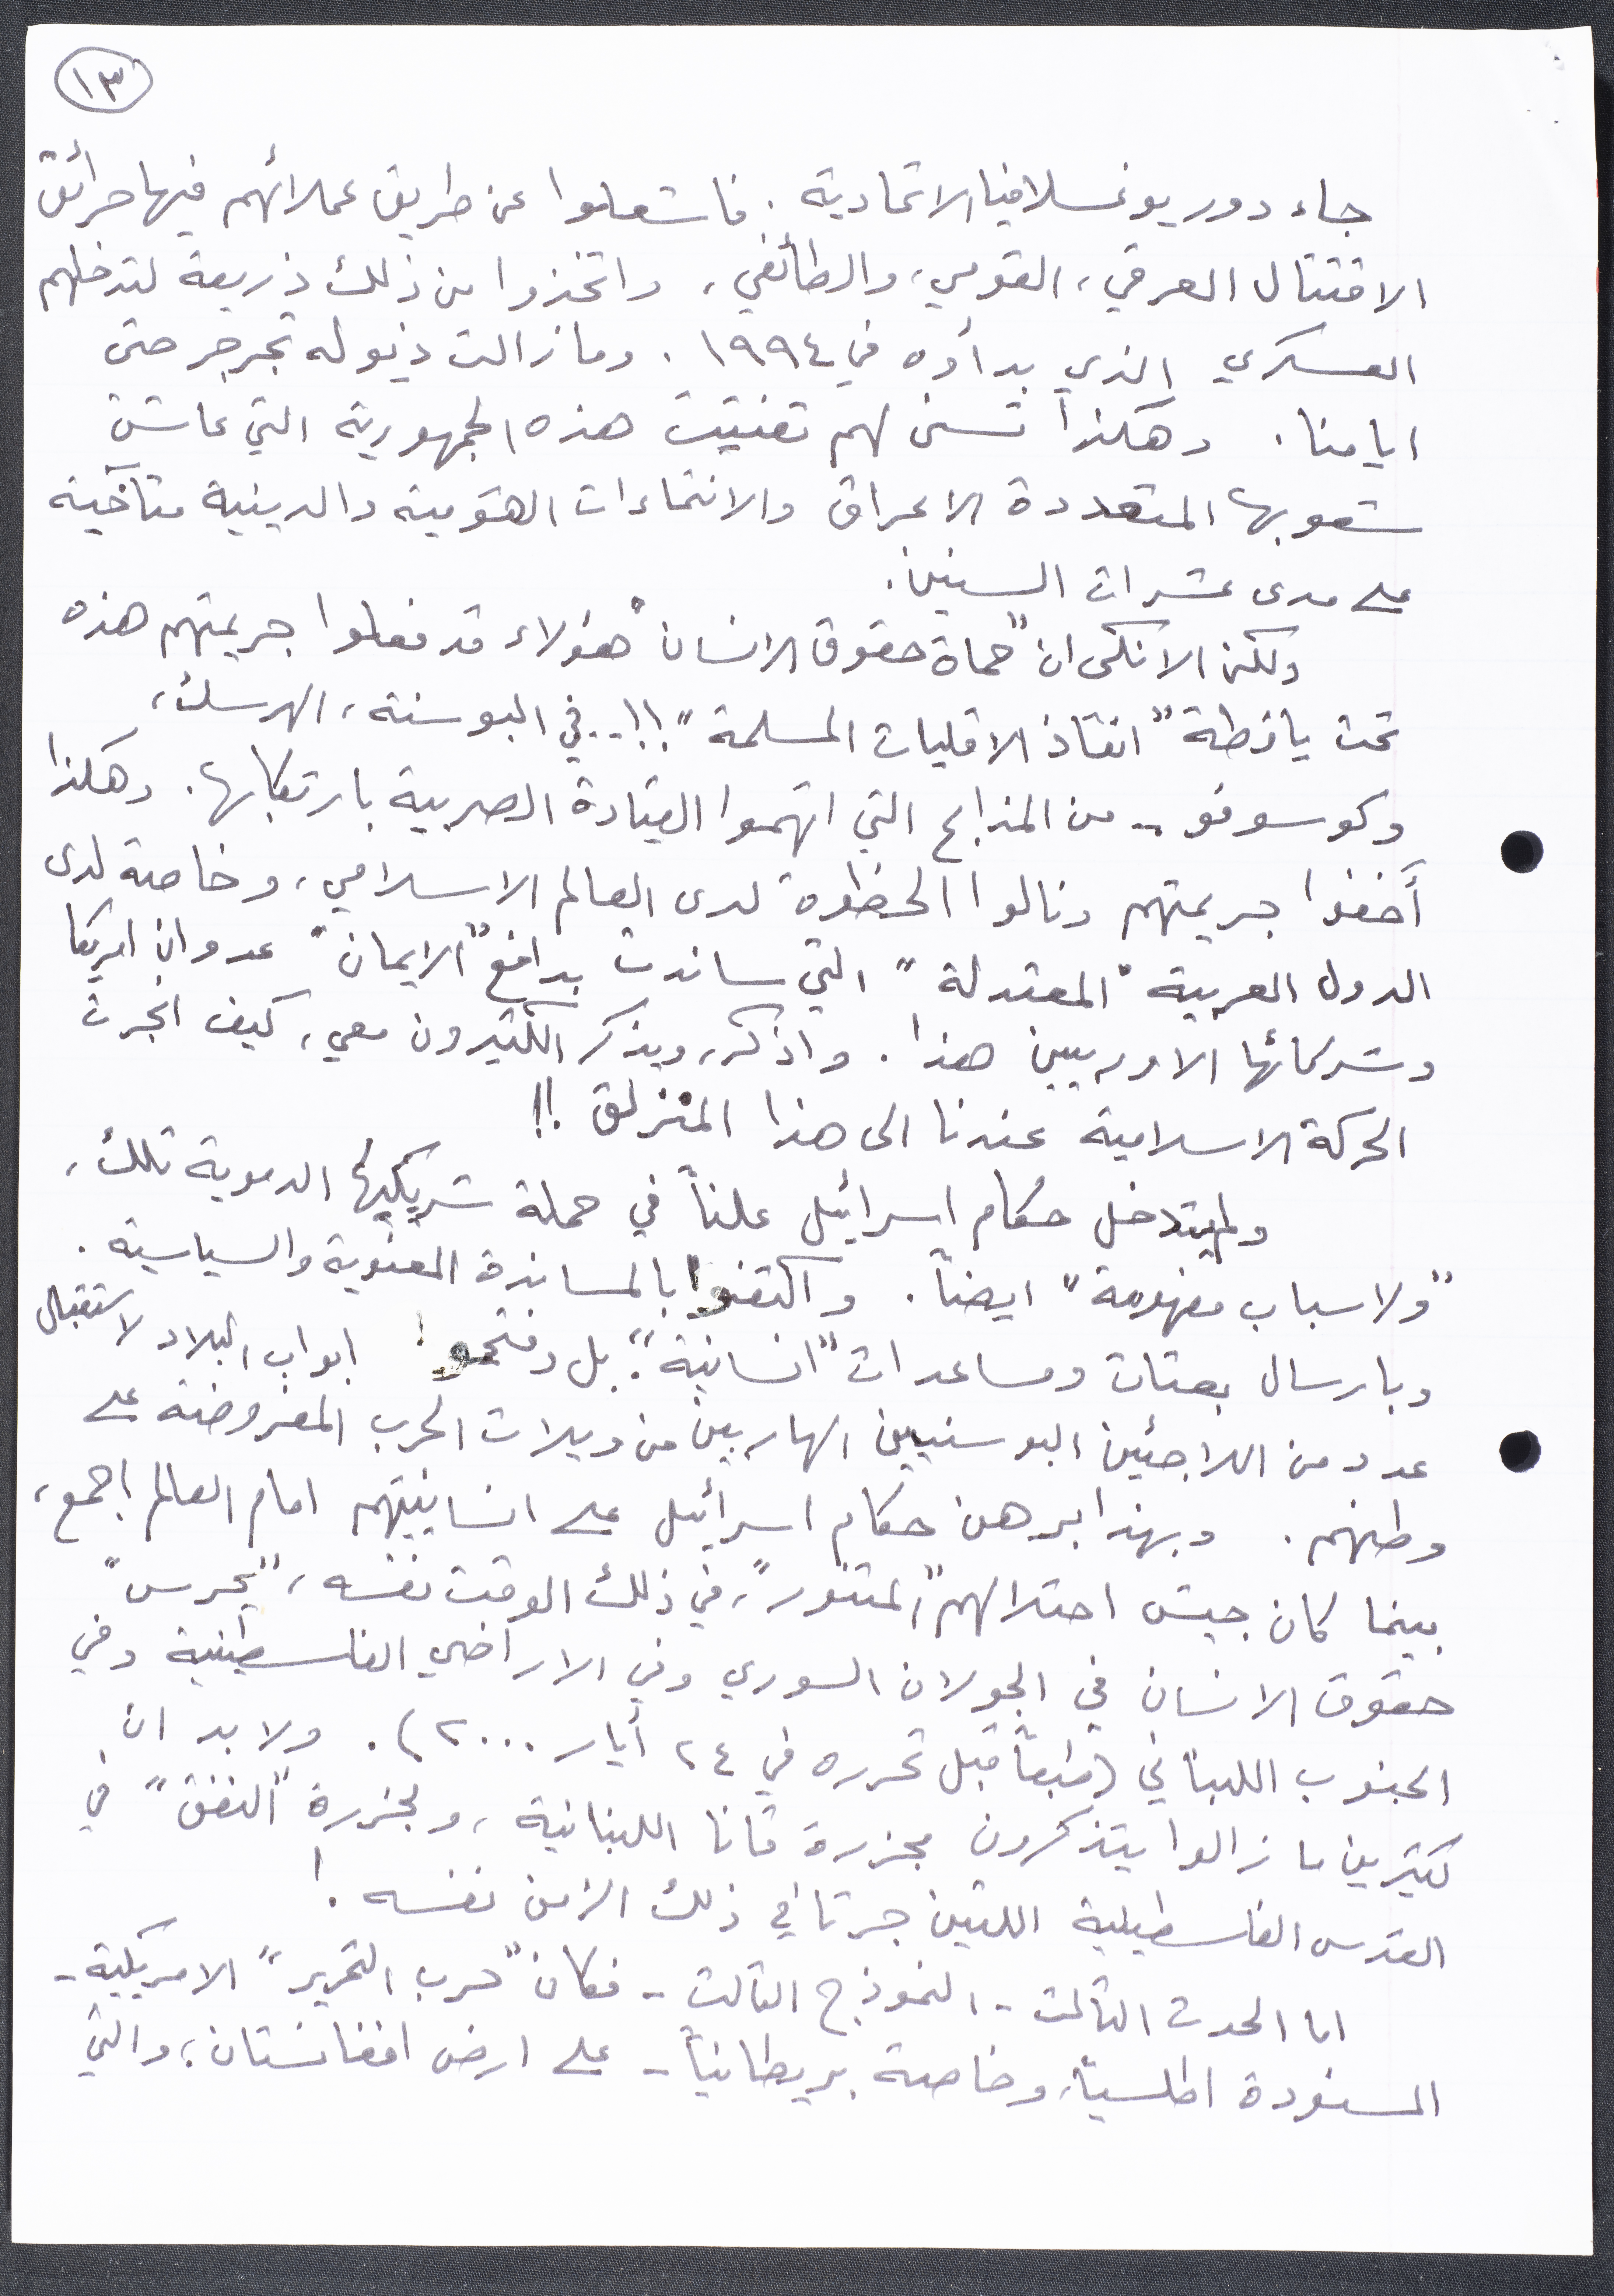 ١٣
جاء دور يوغسلافيا الاتحادية. فاشعلوا عن طريق عملائهم فيها حرائق
الاقتتال العرقي، القومي، والطائفي، واتخذوا من ذلك ذريعة لتدخلهم
العسكري الذي بدأوه في ١٩٩٤. وما زالت ذيوله تجرجر حتى
ايامنا. وهكذا تسنى لهم تفتيت هذه الجمهورية التي عاشت
شعوبها المتعددة الاعراق والانتماءات القومية والدينية متآخية
على مدى عشرات السنين.
ولكن الانكى ان "حماة حقوق الانسان" هؤلاء قد فعلوا جريمتهم هذه
تحت يافطة "انقاذ الاقليات المسلمة"!!.. في البوسنة، الهرسك،
وكوسوفو - من المذابح التي اتهموا القيادة الصربية بارتكابها. وهكذا
أخفوا جريمتهم ونالوا الحظوة لدى العالم الاسلامي، وخاصة لدى
الدول العربية "المعتدلة" التي ساندت بدافع "الايمان" عدوان امريكا
وشركائها الاوربيين هذا. واذكر، ويذكر الكثيرون معي، كيف انجرت
الحركة الاسلامية عندنا الى هذا المنزلق!!
ولم يتدخل حكام اسرائيل علناً في حملة شريكيها الدموية تلك،
"ولاسباب مفهومة" ايضاً. واكتفوا بالمساندة المعنوية والسياسية.
وبارسال بعثات ومساعدات "انسانية". بل وفتحوا ابواب البلاد لاستقبال
عدد من اللاجئين البوسنيين الهاربين من ويلات الحرب المفروضة على
وطنهم. وبهذا برهن حكام اسرائيل على انسانيتهم امام العالم اجمع،
بينما كان جيش احتلالهم "المتنور"، في ذلك الوقت نفسه، "يحرس"
حقوق الانسان في الجولان السوري وفي الاراضي الفلسطينية وفي
الجنوب اللبناني (طبعاً قبل تحرره في ٢٤ أيار ٢٠٠٠). ولا بد ان
كثيرين ما زالوا يتذكرون مجزرة قانا اللبنانية، ومجزرة "النفق" في
القدس الفلسطينية اللتين جرتا في ذلك الزمن نفسه!
اما الحدث الثالث - النموذج الثالث - فكان "حرب التحرير" الامريكية -
المسنودة اطلسياً، وخاصة بريطانياً - على ارض افغانستان، والتي